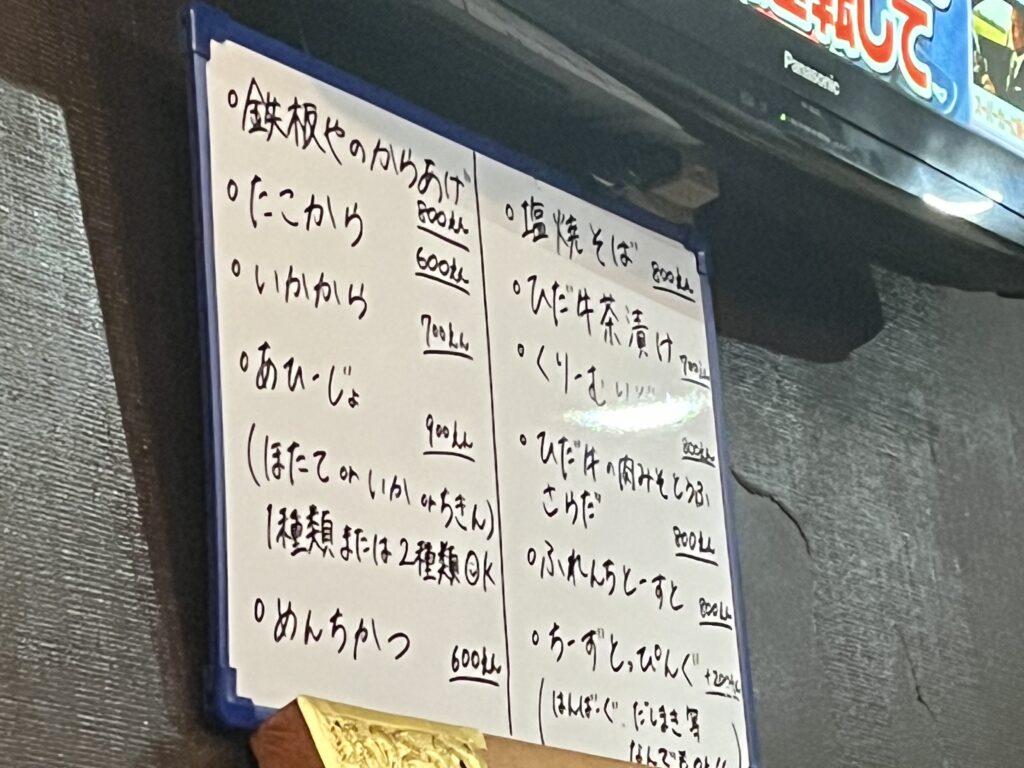 転して
Panasonic
スーパーカーに
○鉄板やのからあげ
800えん
○たこから
600えん
○いかから
700えん
○あひーじょ
900えん
(ほたて or いか orちきん)
1種類または2種類OK
○めんちかつ
600えん
○塩焼そば
800えん
○ひだ牛茶漬け
700えん
○くりーむ
800えん
○ひだ牛の肉みそとうふ
さらだ
800えん
○ふれんちとーすと
800えん
○ちーずとっぴんぐ
+200えん
(はんばーぐ、だしまき等
なんでも